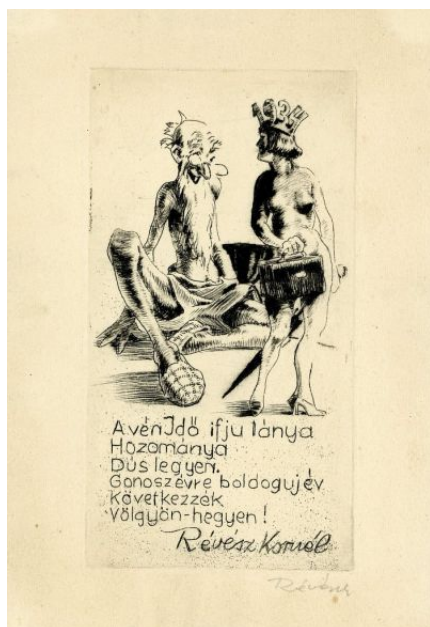 A vén Idő ifju lánya
Hozománya
Dús legyen.
Gonosz évre boldog ujév
Következzék
Völgyön-hegyen!
Révész Kornél
Révész